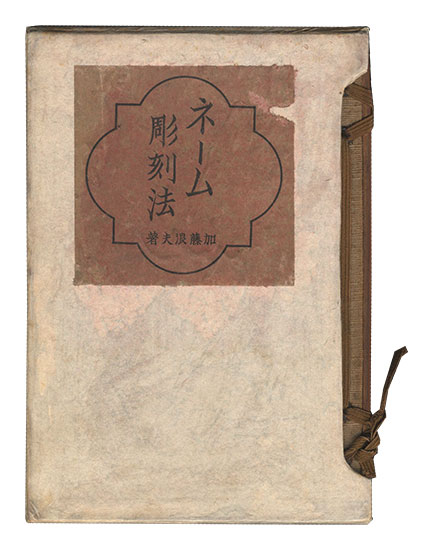 ネーム
彫刻法
加藤浪夫著